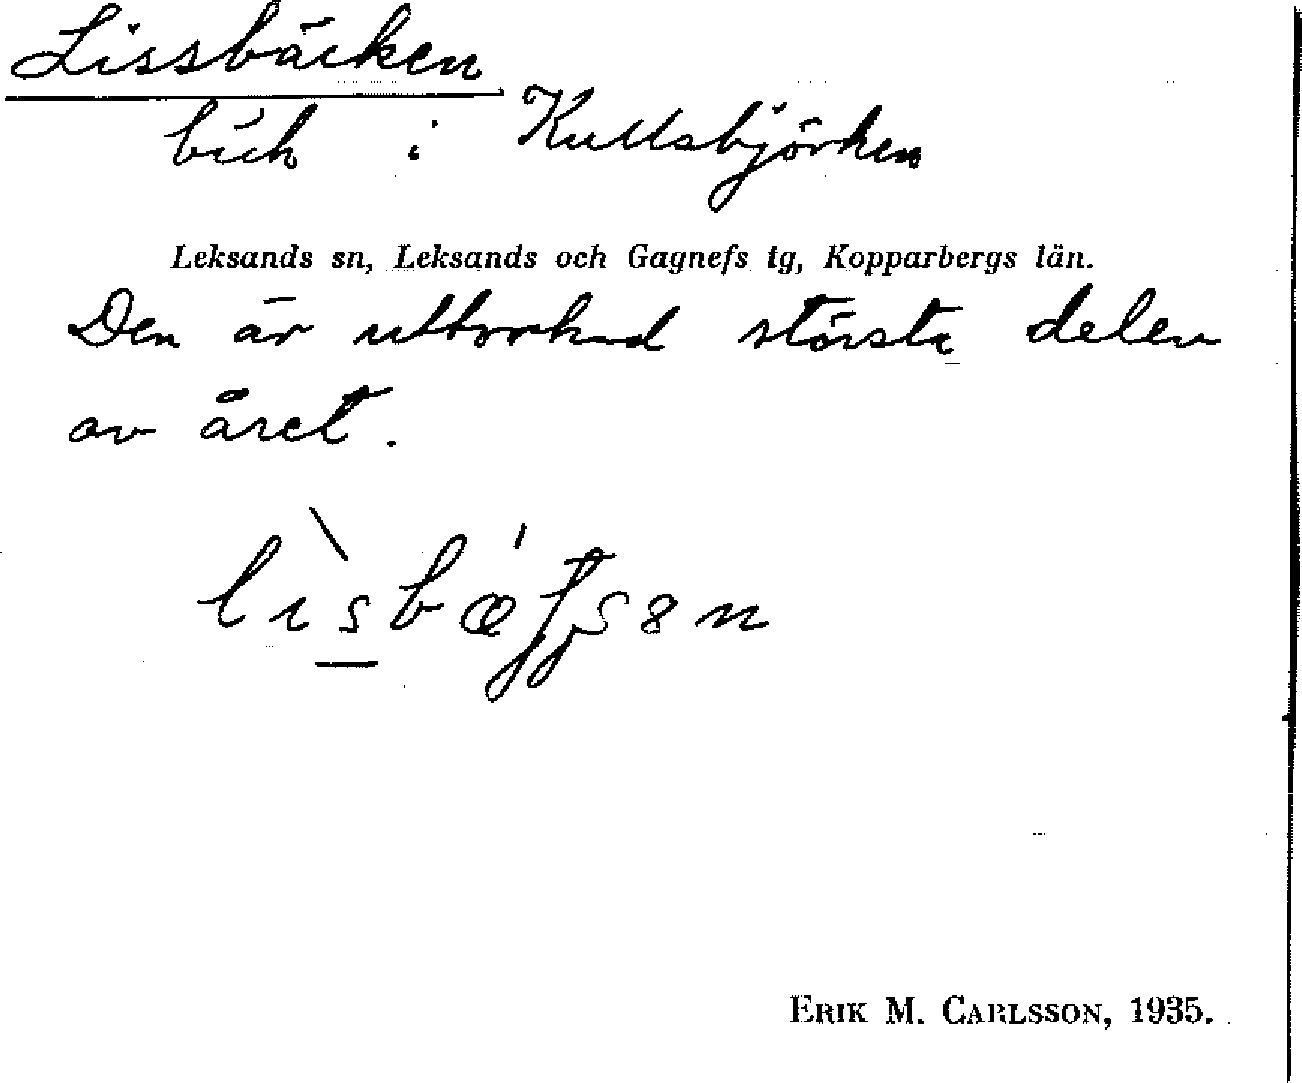 Lissbäcken
bäck i Kullsbjörken
Leksands sn, Leksands och Gagnefs tg, Kopparbergs län.
Den är uttorkad största delen
av året.
ERIK M. CARLSSON, 1935.